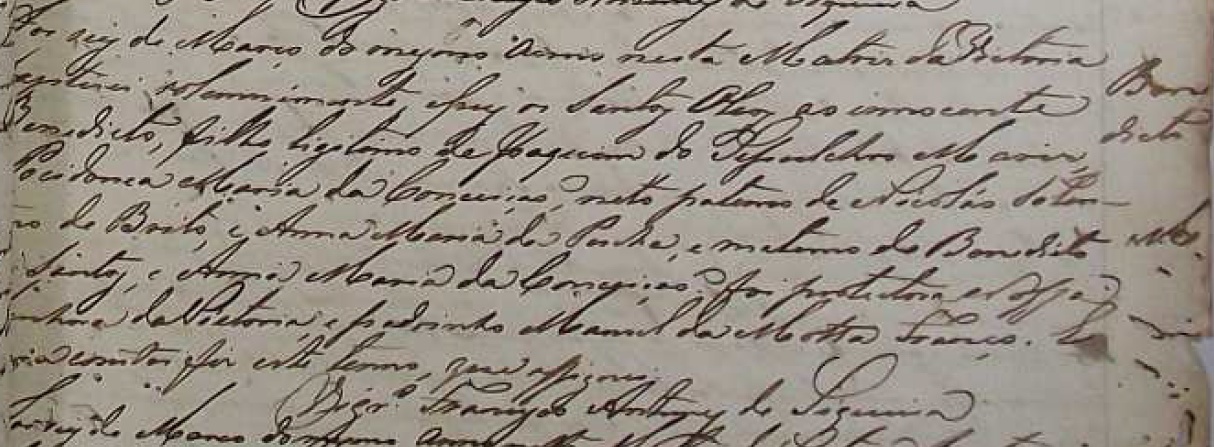 Antunes de Siqueira
Aos seis de Março do mesmo anno nesta Matriz da Victoria
baptisei solemnimente, e puz os Santos Oleos ao innocente
Benedicto, filho legitimo de Joaquim do Sepulchro e Maria
Maria da Conceição, neto paterno de Nicoláo
de Brito, e Anna Maria da Penha, e materno de Benedicto
Santos, e Anna Maria da Conceição: foi protectora a Nossa
Senhora da Victoria, e padrinho Manuel da Motta França. E
para constar fiz este termo, que assignei.
Vigr.º Francisco Antunes de Siqueira
de Março do mesmo anno
Bene
dicto